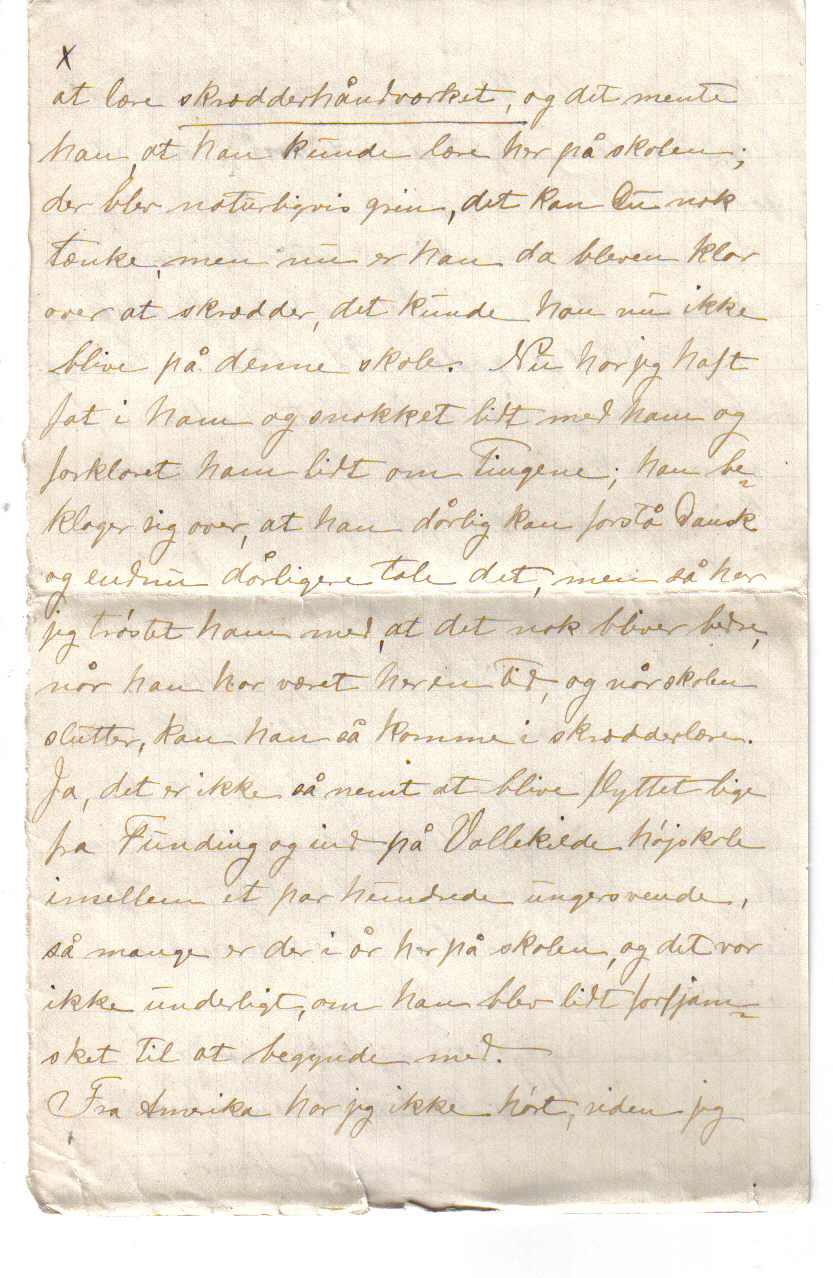 x
at lære skrædderhåndværket, og det mente
han, at han kunde lære her på skolen;
der blev naturligvis grin, det kan Du nok
tænke, men nu er han da bleven klar
over at skrædder, det kunde han nu ikke
blive på denne skole. Nu har jeg haft
fat i ham og snakket lidt med ham og
forklaret ham lidt om Tingene; han be=
klager sig over, at han dårlig kan forstå Dansk
og endnu dårligere tale det, men så har
jeg trøstet ham med, at det nok bliver bedre,
når han har været her en Tid, og når skolen
slutter, kan han så komme i skrædderlære.
Ja, det er ikke så nemt at blive flyttet lige
fra Funding og ind på Vallekilde højskole
imellem et par hundrede ungersvende,
så mange er der i år her på skolen, og det var
ikke underligt, om han blev lidt forfjam=
sket til at begynde med.
Fra Amerika har jeg ikke hørt, siden jeg